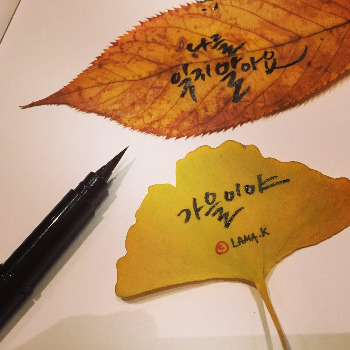 나를
잊지말아요
가을이야
LAMA.K